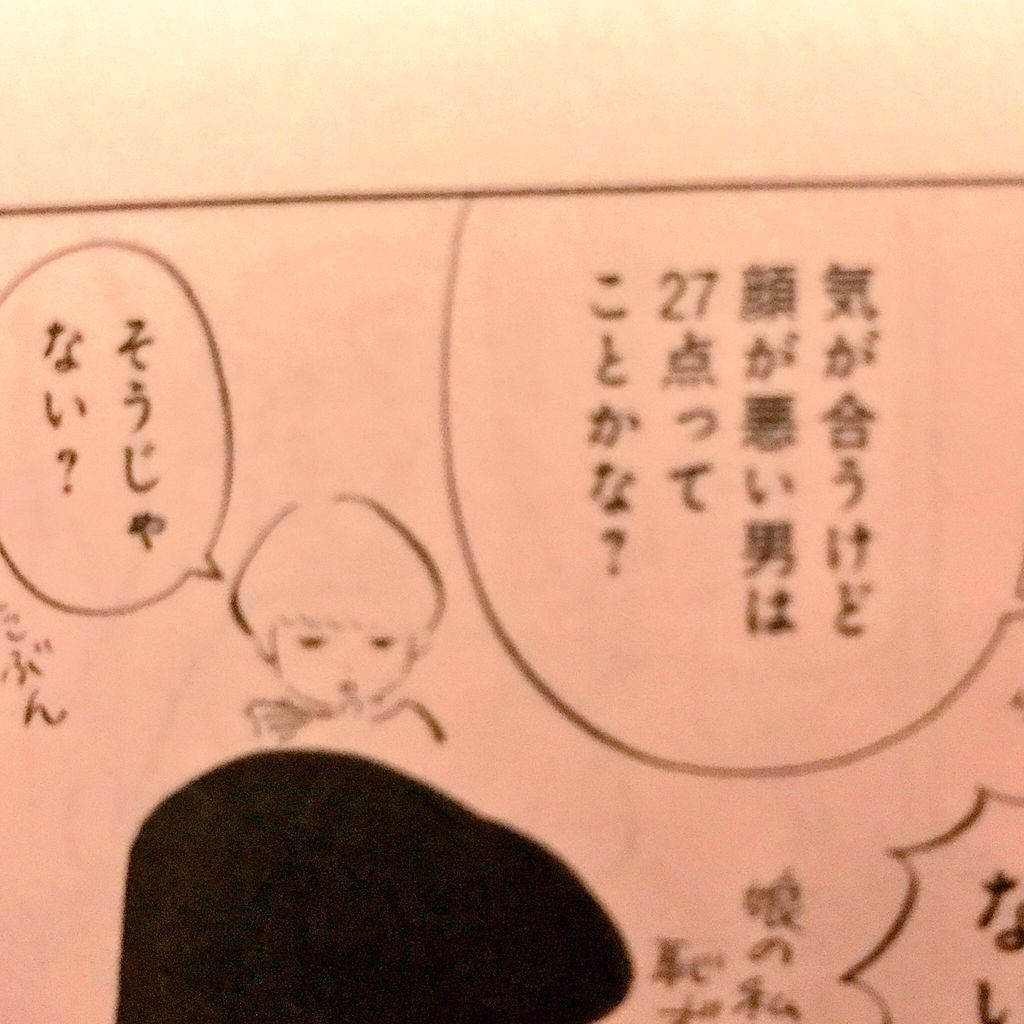 気が合うけど
顔が悪い男は
27点って
ことかな？
そうじゃ
ない？
娘の私